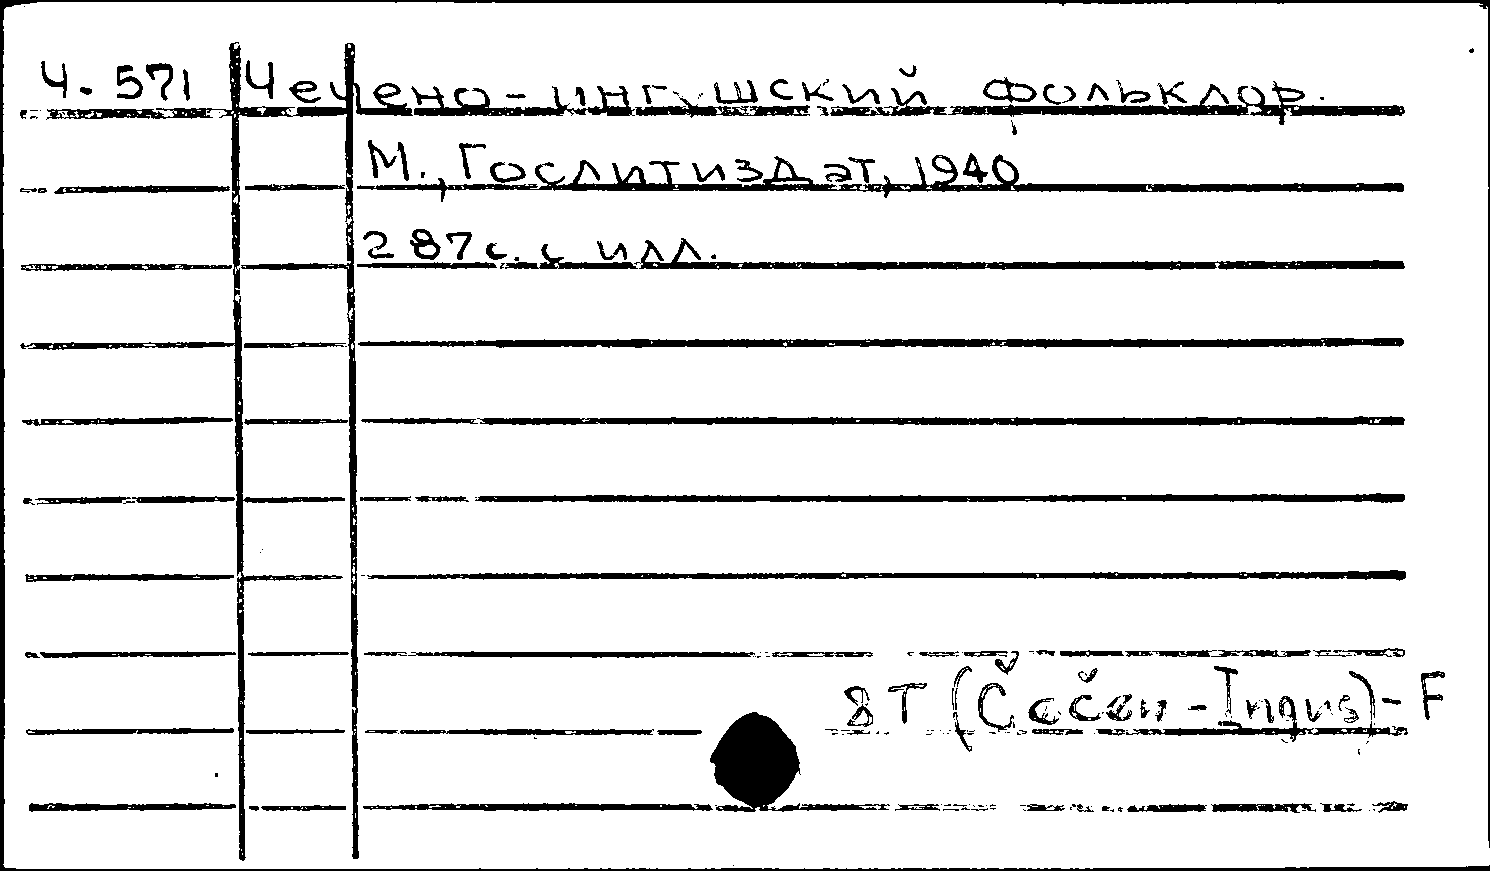 Ч. 571 Чечено-ингушский фольклор.
М., Гослитиздат, 1940
287 с. с илл.
8Т (Čečen-Ingus)-F